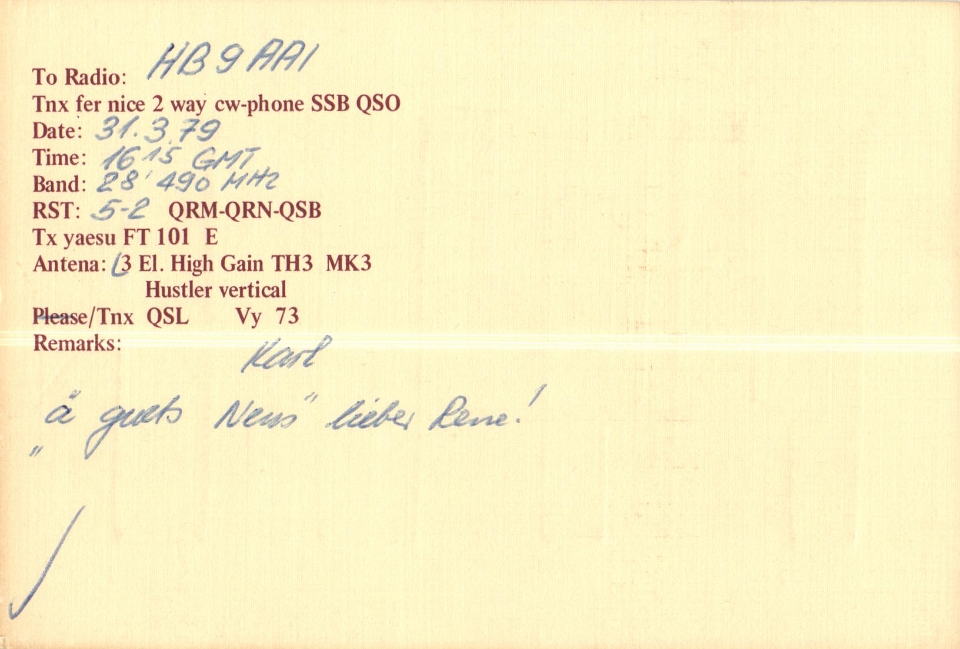 To Radio: HB9AAI
Tnx fer nice 2 way cw-phone SSB QSO
Date: 31.3.79
Time: 16 15 GMT
Band: 28'490 MHz
RST: 5-2 QRM-QRN-QSB
Tx yaesu FT 101 E
Antena: 3 El. High Gain TH3 MK3
Hustler vertical
Please/Tnx QSL Vy 73
Remarks:
Karl
"ä guets Neus" lieber Rene!